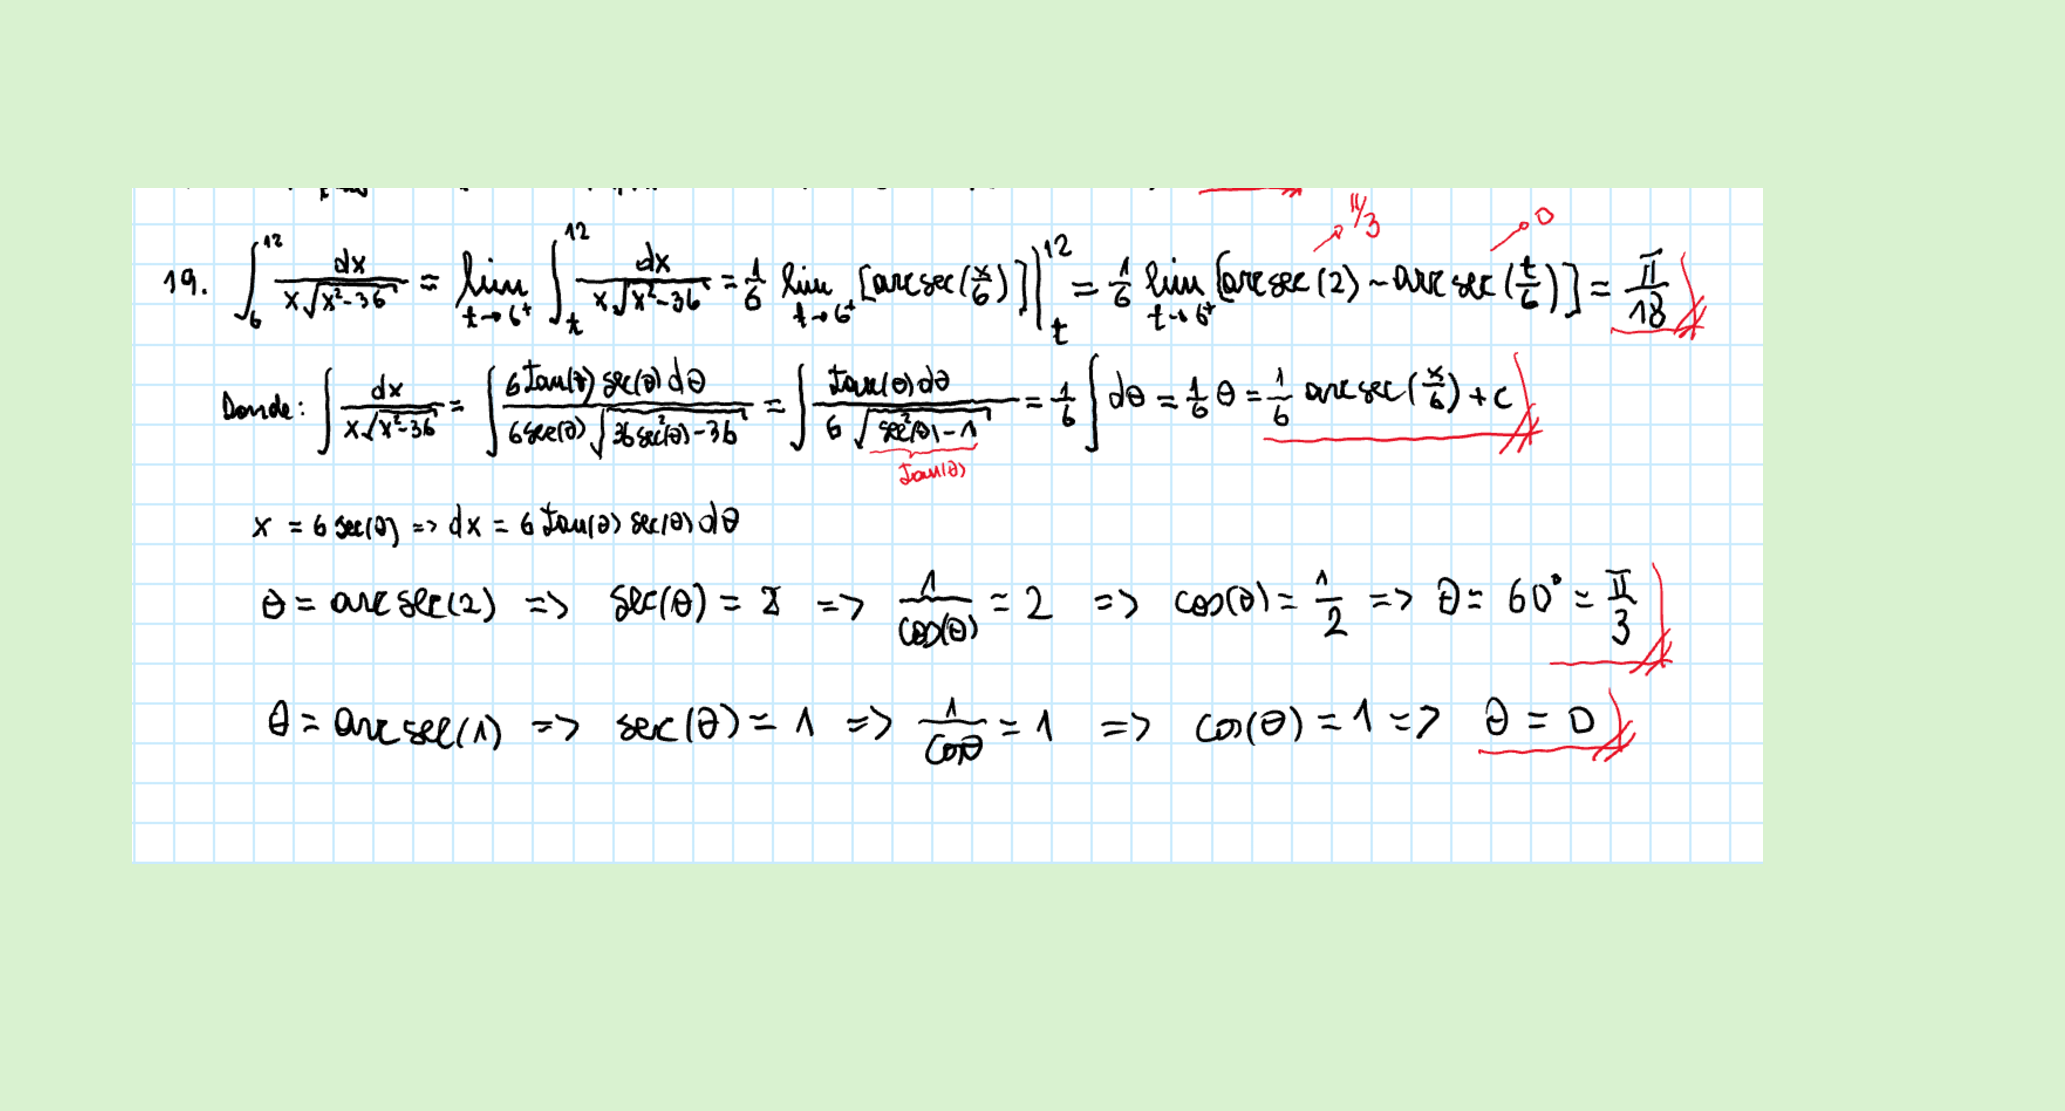 π/3 0
19. ∫_6^12 dx/(x√(x²-36)) = lim_{t→6⁺} ∫_t^12 dx/(x√(x²-36)) = 1/6 lim_{t→6⁺} [arcsec(x/6)]|_t^12 = 1/6 lim_{t→6⁺} [arcsec(2) - arcsec(t/6)] = π/18
Donde: ∫ dx/(x√(x²-36)) = ∫ 6tan(θ) sec(θ) dθ/(6sec(θ)√(36sec²(θ)-36)) = ∫ tan(θ)dθ/(6√(sec²(θ)-1)) = 1/6 ∫ dθ = 1/6 θ = 1/6 arcsec(x/6) + c
tan(θ)
x = 6 sec(θ) => dx = 6 tan(θ) sec(θ) dθ
θ = arcsec(2) => sec(θ) = 2 => 1/cos(θ) = 2 => cos(θ) = 1/2 => θ = 60° = π/3
θ = arcsec(1) => sec(θ) = 1 => 1/cosθ = 1 => cos(θ) = 1 => θ = 0